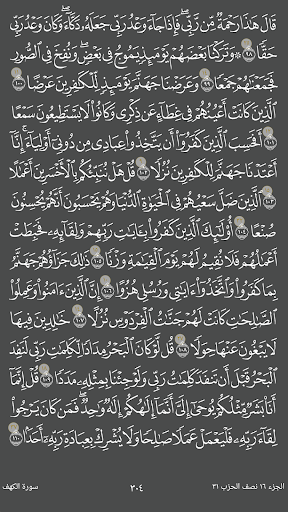 قَالَ هَٰذَا رَحْمَةٌ مِّن رَّبِّي ۖ فَإِذَا جَاءَ وَعْدُ رَبِّي جَعَلَهُ دَكَّاءَ ۖ وَكَانَ وَعْدُ رَبِّي
حَقًّا ٩٨ ۞ وَتَرَكْنَا بَعْضَهُمْ يَوْمَئِذٍ يَمُوجُ فِي بَعْضٍ ۖ وَنُفِخَ فِي الصُّورِ
فَجَمَعْنَاهُمْ جَمْعًا ٩٩ وَعَرَضْنَا جَهَنَّمَ يَوْمَئِذٍ لِّلْكَافِرِينَ عَرْضًا ١٠٠
الَّذِينَ كَانَتْ أَعْيُنُهُمْ فِي غِطَاءٍ عَن ذِكْرِي وَكَانُوا لَا يَسْتَطِيعُونَ سَمْعًا
١٠١ أَفَحَسِبَ الَّذِينَ كَفَرُوا أَن يَتَّخِذُوا عِبَادِي مِن دُونِي أَوْلِيَاءَ ۚ إِنَّا
أَعْتَدْنَا جَهَنَّمَ لِلْكَافِرِينَ نُزُلًا ١٠٢ قُلْ هَلْ نُنَبِّئُكُم بِالْأَخْسَرِينَ أَعْمَالًا
١٠٣ الَّذِينَ ضَلَّ سَعْيُهُمْ فِي الْحَيَاةِ الدُّنْيَا وَهُمْ يَحْسَبُونَ أَنَّهُمْ يُحْسِنُونَ
صُنْعًا ١٠٤ أُولَٰئِكَ الَّذِينَ كَفَرُوا بِآيَاتِ رَبِّهِمْ وَلِقَائِهِ فَحَبِطَتْ
أَعْمَالُهُمْ فَلَا نُقِيمُ لَهُمْ يَوْمَ الْقِيَامَةِ وَزْنًا ١٠٥ ذَٰلِكَ جَزَاؤُهُمْ جَهَنَّمُ
بِمَا كَفَرُوا وَاتَّخَذُوا آيَاتِي وَرُسُلِي هُزُوًا ١٠٦ إِنَّ الَّذِينَ آمَنُوا وَعَمِلُوا
الصَّالِحَاتِ كَانَتْ لَهُمْ جَنَّاتُ الْفِرْدَوْسِ نُزُلًا ١٠٧ خَالِدِينَ فِيهَا
لَا يَبْغُونَ عَنْهَا حِوَلًا ١٠٨ قُل لَّوْ كَانَ الْبَحْرُ مِدَادًا لِّكَلِمَاتِ رَبِّي لَنَفِدَ
الْبَحْرُ قَبْلَ أَن تَنفَدَ كَلِمَاتُ رَبِّي وَلَوْ جِئْنَا بِمِثْلِهِ مَدَدًا ١٠٩ قُلْ إِنَّمَا
أَنَا بَشَرٌ مِّثْلُكُمْ يُوحَىٰ إِلَيَّ أَنَّمَا إِلَٰهُكُمْ إِلَٰهٌ وَاحِدٌ ۖ فَمَن كَانَ يَرْجُو
لِقَاءَ رَبِّهِ فَلْيَعْمَلْ عَمَلًا صَالِحًا وَلَا يُشْرِكْ بِعِبَادَةِ رَبِّهِ أَحَدًا ١١٠
الجزء ١٦ نصف الحزب ٣١
٣٠٤
سورة الكهف